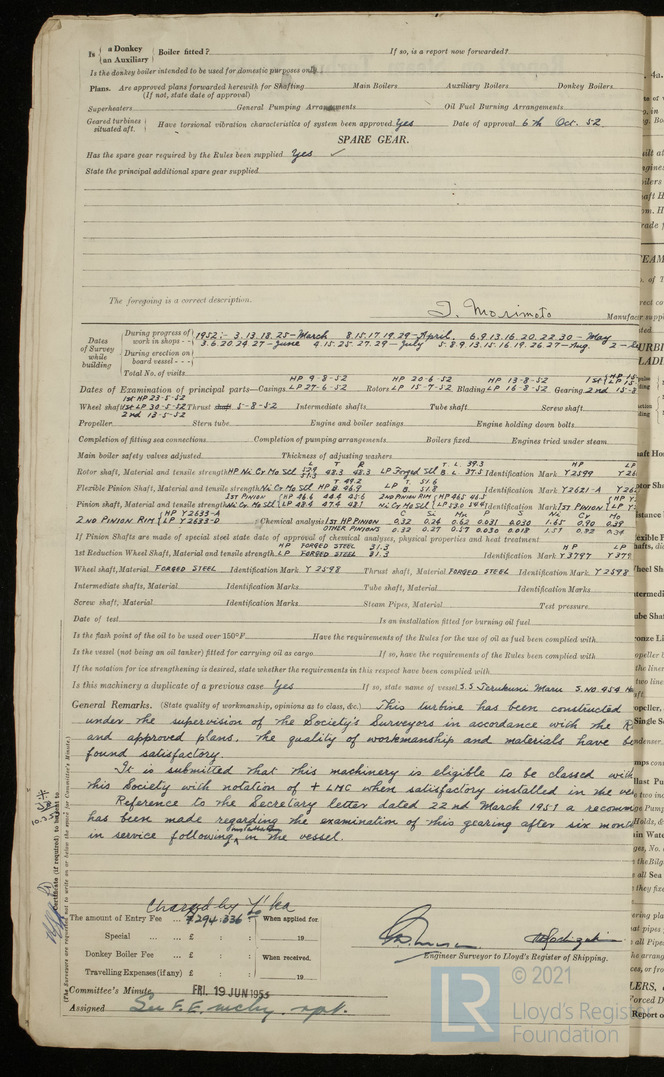 Is { a Donkey / an Auxiliary } Boiler fitted? If so, is a report now forwarded?
Is the donkey boiler intended to be used for domestic purposes only
Plans. Are approved plans forwarded herewith for Shafting Main Boilers Auxiliary Boilers Donkey Boilers
(If not, state date of approval)
Superheaters General Pumping Arrangements Oil Fuel Burning Arrangements
Geared turbines situated aft. } Have torsional vibration characteristics of system been approved Yes Date of approval 6th Oct. 52
SPARE GEAR.
Has the spare gear required by the Rules been supplied Yes ✓
State the principal additional spare gear supplied
The foregoing is a correct description.
Morimoto Manufac
Dates of Survey while building
During progress of work in shops - - 1952:- 3.13.18.25-March 8.15.17.19.29-April. 6.9.13.16.20.22.30-May
3.6.20.24.27-June 4.15.25.27.29-July 5.8.9.13.15.16.19.26.27-Aug 2
During erection on board vessel - - -
Total No. of visits
HP 9-8-52 HP 20-6-52 HP 13-8-52
Dates of Examination of principal parts—Casings LP 27-6-52 Rotors LP 15-7-52 Blading LP 16-8-52 Gearing 2nd 15-8
1st HP 23-5-52
Wheel shaft 1st LP 30-5-52 Thrust shaft 5-8-52 Intermediate shafts Tube shaft Screw shaft
2nd 13-5-52
Propeller Stern tube Engine and boiler seatings Engine holding down bolts
Completion of fitting sea connections Completion of pumping arrangements Boilers fixed Engines tried under steam
Main boiler safety valves adjusted Thickness of adjusting washers
L T R T. L. 39.3 HP LP
Rotor shaft, Material and tensile strength HP Ni Cr Mo Stl 48.3 48.3 LP Forged Stl B. L 37.5 Identification Mark Y2599
T 49.2 T. 51.6
Flexible Pinion Shaft, Material and tensile strength Ni Cr Mo Stl HP B 46.9 LP B 51.8 Identification Mark Y2621-A
1st PINION { HP 46.6 44.4 45.6 2ND PINION RIM { HP 46.5 46.5
Pinion shaft, Material and tensile strength Ni Cr Mo Stl { LP 48.4 47.4 48.1 Ni Cr Mo Stl { LP 53.0 54.4 Identification Mark 1st PINION
{ HP Y2633-A C Si Mn P S Ni Cr Mo
2ND PINION RIM { LP Y2633-D Chemical analysis 1st HP PINION 0.32 0.26 0.62 0.031 0.030 1.65 0.90 0.39
OTHER PINIONS 0.32 0.27 0.57 0.030 0.018 1.57 0.92 0.39
If Pinion Shafts are made of special steel state date of approval of chemical analyses, physical properties and heat treatment
HP FORGED STEEL 31.3 HP LP
1st Reduction Wheel Shaft, Material and tensile strength LP FORGED STEEL 31.3 Identification Mark Y3797 Y379
Wheel shaft, Material FORGED STEEL Identification Mark Y 2598 Thrust shaft, Material FORGED STEEL Identification Mark Y 2598
Intermediate shafts, Material Identification Marks Tube shaft, Material Identification Marks
Screw shaft, Material Identification Marks Steam Pipes, Material Test pressure
Date of test Is an installation fitted for burning oil fuel
Is the flash point of the oil to be used over 150°F. Have the requirements of the Rules for the use of oil as fuel been complied with
Is the vessel (not being an oil tanker) fitted for carrying oil as cargo If so, have the requirements of the Rules been complied with
If the notation for ice strengthening is desired, state whether the requirements in this respect have been complied with
Is this machinery a duplicate of a previous case Yes If so, state name of vessel S.S Terukuni Maru S.NO.454
General Remarks. (State quality of workmanship, opinions as to class, &c.) This turbine has been constructed
under the supervision of the Society's Surveyors in accordance with the
and approved plans, the quality of workmanship and materials have be
found satisfactory.
It is submitted that this machinery is eligible to be classed with
this Society with notation of + LMC when satisfactory installed in the
Reference to the Secretary letter dated 22nd March 1951 a recomm
has been made regarding the examination of this gearing after six mont
in service following installation in the vessel.
Charged by
The amount of Entry Fee ... ¥294.336 When applied for
Special ... £ : : 19
Donkey Boiler Fee ... £ : : When received,
Travelling Expenses (if any) £ : : 19
Engineer Surveyor to Lloyd's Register of Shipping.
Committee's Minute FRI. 19 JUN 1953
Assigned See F.E. mchy. rpt.
(The Surveyors are requested not to write on or below the space for Committee's Minute.)
Certificate (if required) to be sent to
© 2021
LR
Lloyd's Regis
Foundation